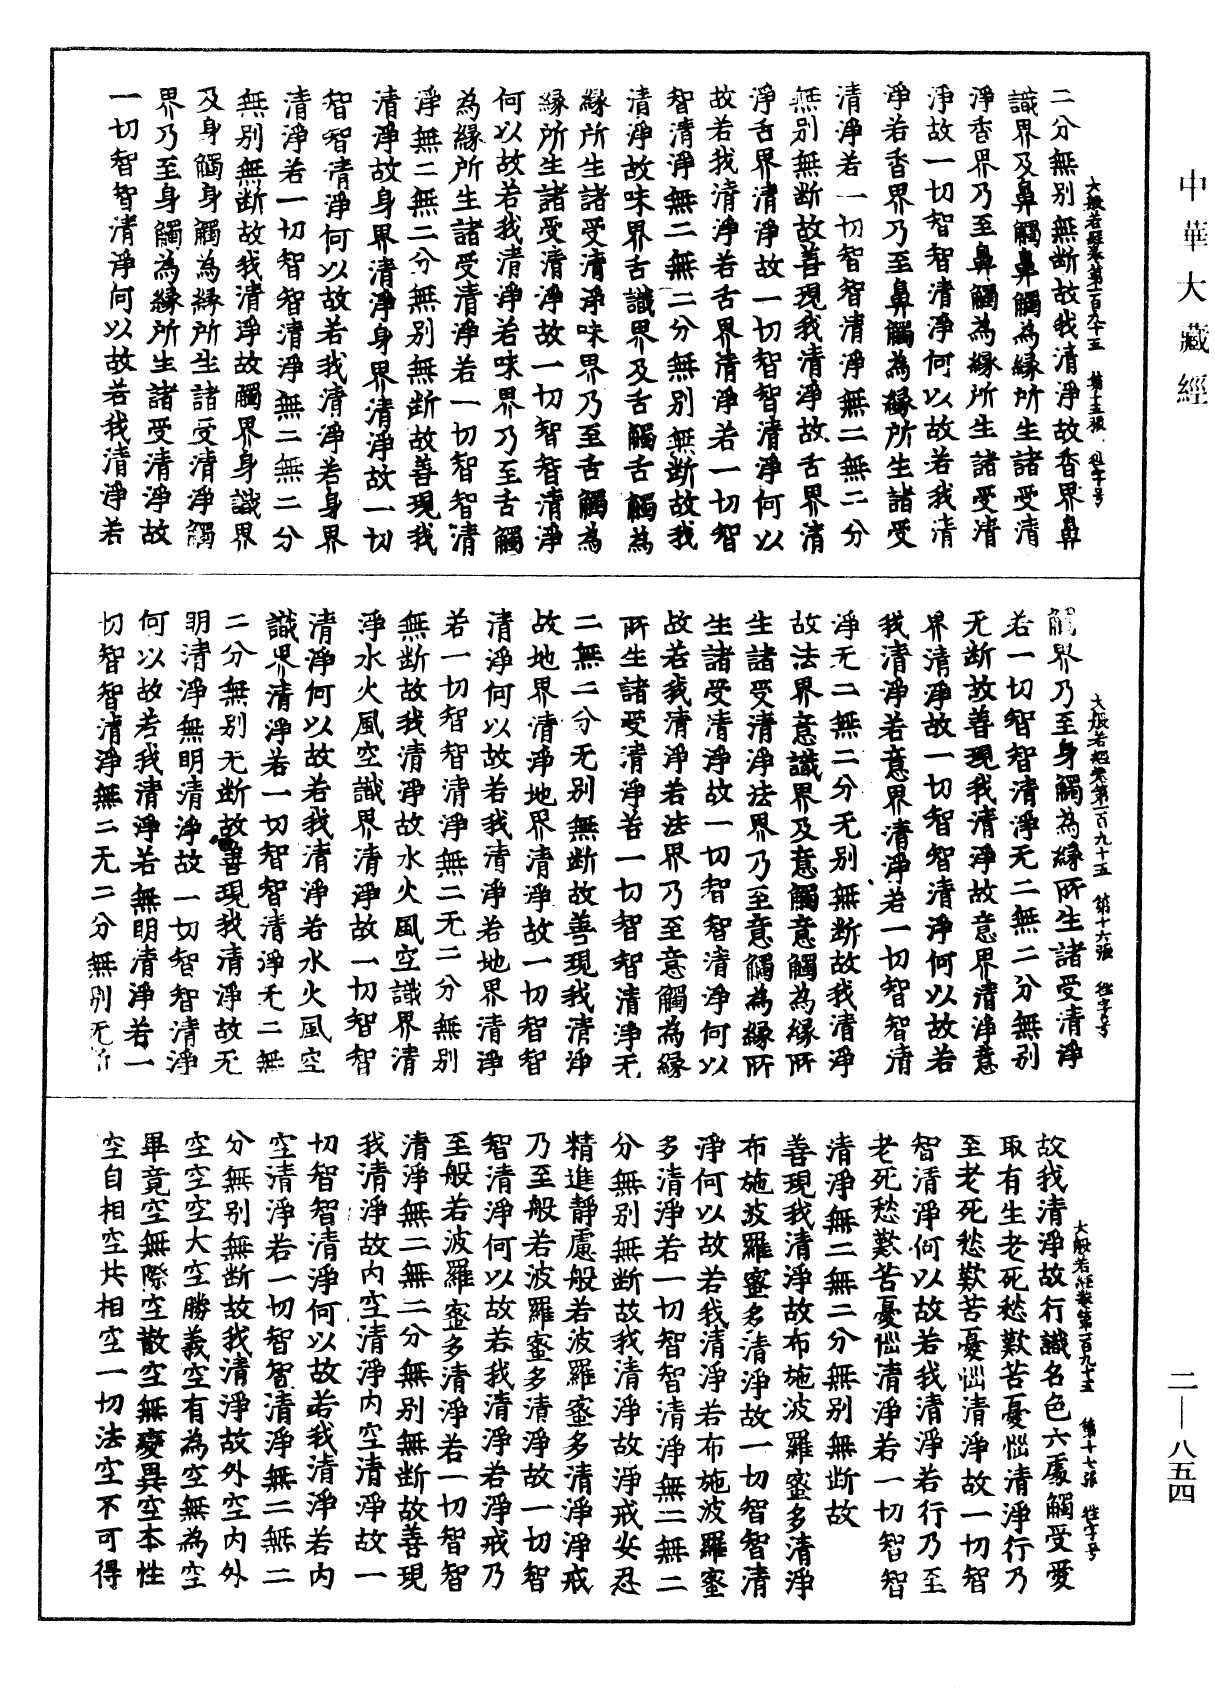 中華大藏經
二—八五四
大般若經卷第一百九十五　第十五張　往字号
二分無別無断故我清淨故香界鼻
識界及鼻觸鼻觸為緣所生諸受清
淨香界乃至鼻觸為緣所生諸受清
淨故一切智智清淨何以故若我清
淨若香界乃至鼻觸為緣所生諸受
清淨若一切智智清淨無二無二分
無別無断故善現我清淨故舌界清
淨舌界清淨故一切智智清淨何以
故若我清淨若舌界清淨若一切智
智清淨無二無二分無別無断故我
清淨故味界舌識界及舌觸舌觸為
緣所生諸受清淨味界乃至舌觸為
緣所生諸受清淨故一切智智清淨
何以故若我清淨若味界乃至舌觸
為緣所生諸受清淨若一切智智清
淨無二無二分無別無断故善現我
清淨故身界清淨身界清淨故一切
智智清淨何以故若我清淨若身界
清淨若一切智智清淨無二無二分
無別無断故我清淨故觸界身識界
及身觸身觸為緣所生諸受清淨觸
界乃至身觸為緣所生諸受清淨故
一切智智清淨何以故若我清淨若
大般若經卷第一百九十五　第十六張　往字号
觸界乃至身觸為緣所生諸受清淨
若一切智智清淨无二無二分無別
无断故善現我清淨故意界清淨意
界清淨故一切智智清淨何以故若
我清淨若意界清淨若一切智智清
淨无二無二分无別無断故我清淨
故法界意識界及意觸意觸為緣所
生諸受清淨法界乃至意觸為緣所
生諸受清淨故一切智智清淨何以
故若我清淨若法界乃至意觸為緣
所生諸受清淨若一切智智清淨无
二無二分无別無断故善現我清淨
故地界清淨地界清淨故一切智智
清淨何以故若我清淨若地界清淨
若一切智智清淨無二无二分無別
無断故我清淨故水火風空識界清
淨水火風空識界清淨故一切智智
清淨何以故若我清淨若水火風空
識界清淨若一切智智清淨无二無
二分無別无断故善現我清淨故无
明清淨無明清淨故一切智智清淨
何以故若我清淨若無明清淨若一
切智智清淨無二无二分無別无断
大般若經卷第一百九十五　第十七張　往字号
故我清淨故行識名色六處觸受愛
取有生老死愁歎苦憂惱清淨行乃
至老死愁歎苦憂惱清淨故一切智
智清淨何以故若我清淨若行乃至
老死愁歎苦憂惱清淨若一切智智
清淨無二無二分無別無断故
善現我清淨故布施波羅蜜多清淨
布施波羅蜜多清淨故一切智智清
淨何以故若我清淨若布施波羅蜜
多清淨若一切智智清淨無二無二
分無別無断故我清淨故淨戒安忍
精進靜慮般若波羅蜜多清淨淨戒
乃至般若波羅蜜多清淨故一切智
智清淨何以故若我清淨若淨戒乃
至般若波羅蜜多清淨若一切智智
清淨無二無二分無別無断故善現
我清淨故內空清淨內空清淨故一
切智智清淨何以故若我清淨若內
空清淨若一切智智清淨無二無二
分無別無断故我清淨故外空內外
空空空大空勝義空有為空無為空
畢竟空無際空散空無變異空本性
空自相空共相空一切法空不可得